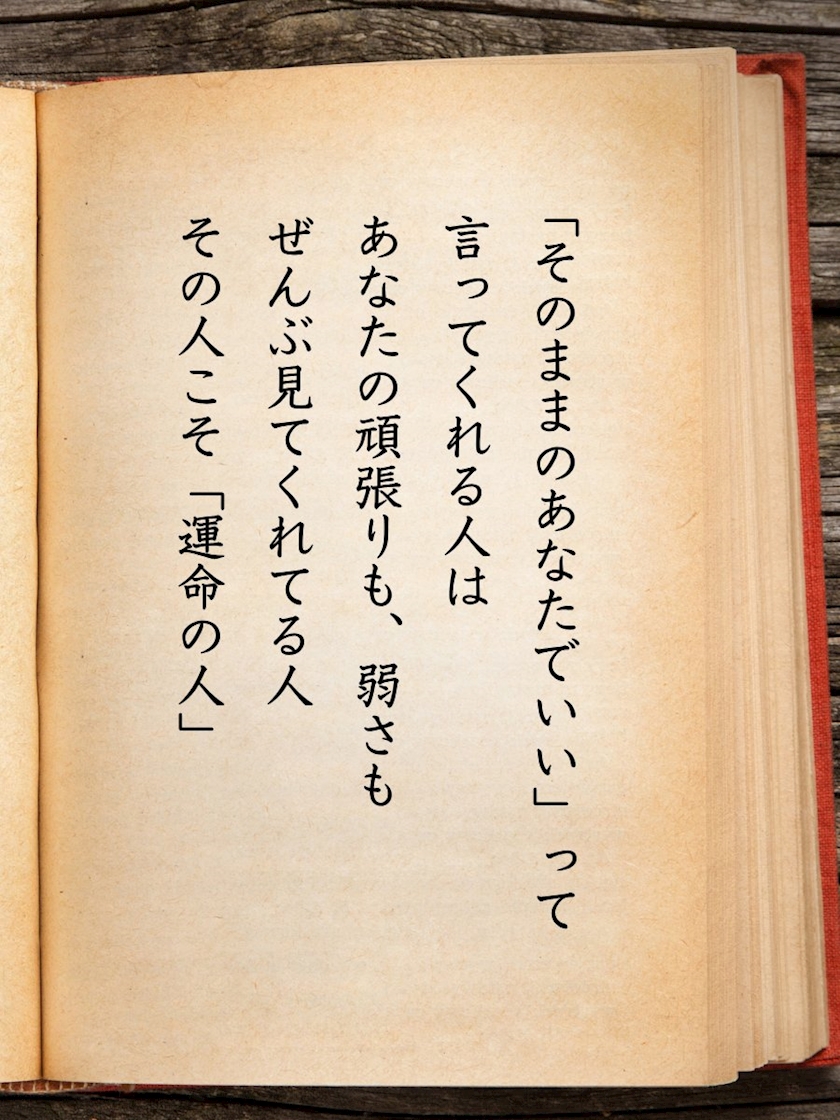 「そのままのあなたでいい」って
言ってくれる人は
あなたの頑張りも、弱さも
ぜんぶ見てくれてる人
その人こそ「運命の人」